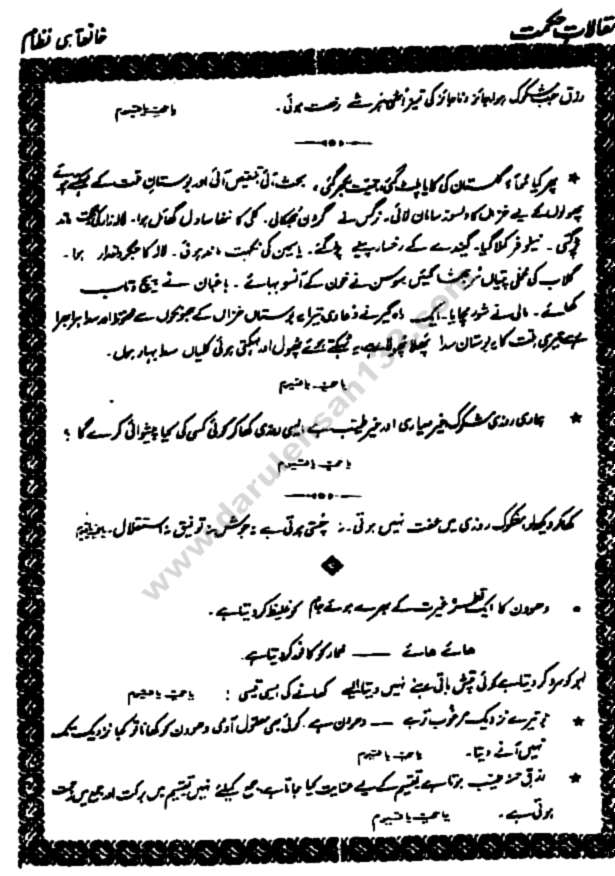 مقالاتِ حکمت
خانقاہی نظام
رزق جب مشکوک ہو جائز و ناجائز کی تمیز اٹھی ہنر سے رخصت ہوئی۔
یا حی یا قیوم
* پھر کیا ہُوا؟ گلستان کی کایا پلٹ گئی، جمعیت بکھر گئی، بحث آئی تنقیص آئی اور بوستانِ قدرت کے مہکتے ہوئے
پھولوں کے لیے خزاں کا سامان لائی۔ نرگس نے گردن جھکائی۔ کلی کا ننھا سا دل گھائل ہوا۔ لالہ زار کی رنگت ماند
پڑ گئی۔ نیلوفر کملا گیا۔ گیندے کے رخسار پیلے پڑ گئے۔ یاسمین کی نکہت ماند ہوئی۔ لالہ کا جگر داغدار ہوا۔
گلاب کی مخملی پتیاں سوسن نے خون کے آنسو بہائے۔ باغبان نے پیچ و تاب
کھائے۔ مالی نے شور مچایا۔ ایک راہ گیر نے دعا دی تیرا یہ بوستاں خزاں کے جھونکوں سے محفوظ اور سدا ہرا بھرا
رہے تیری قدرت کا یہ بوستان سدا پھلا پھولا رہے یہ مہکتے ہوئے پھول اور مہکتی ہوئی کلیاں سدا بہار ہوں۔
یا حی یا قیوم
* ہماری روزی مشکوک غیر معیاری اور غیر طیب ہے ایسی روزی کھا کر کوئی کسی کی کیا پیشوائی کرے گا؟
یا حی یا قیوم
کھا کر دیکھ لو مشکوک روزی میں عفت نہیں ہوتی۔ نہ چستی ہوتی ہے نہ جوش نہ توفیق نہ استقلال۔ یا حی یا قیوم
• دھوون کا ایک قطرہ غیرت کے بھرے ہوئے جام کو غلیظ کر دیتا ہے۔
ہائے ہائے —— کو کر دیتا ہے۔
لہو کو سرد کر دیتا ہے کوئی تپش باقی رہنے نہیں دیتا ایسے کھانے کی ایسی تیسی: یا حی یا قیوم
* جو تیرے نزدیک مرغوب تر ہے —— دھوون ہے۔ کوئی بھی معقول آدمی دھوون کو کھانا تو کجا نزدیک تک
نہیں آنے دیتا۔ یا حی یا قیوم
* رزق ہوتا ہے تقسیم کے لیے عنایت کیا جاتا ہے، جمع کیلئے نہیں تقسیم میں برکت اور جمع میں
ہوتی ہے۔ یا حی یا قیوم
www.darulehsan132.com